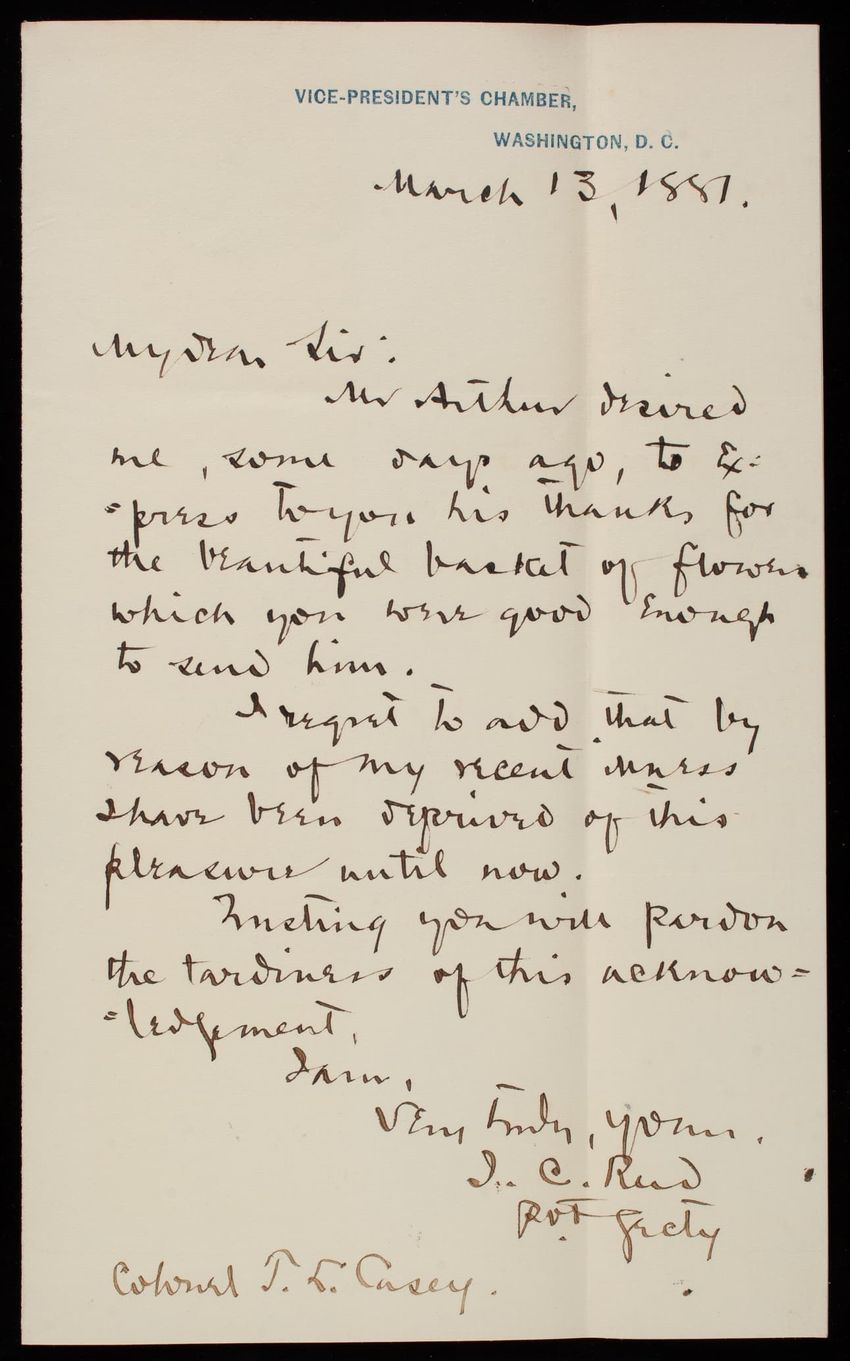 VICE-PRESIDENT'S CHAMBER,
WASHINGTON, D. C.
March 13, 1881.
My dear Sir:
Mr Arthur desired
me, some days ago, to ex-
-press to you his thanks for
the beautiful basket of flowers
which you were good enough
to send him.
I regret to add that by
reason of my recent illness
I have been deprived of this
pleasure until now.
Trusting you will pardon
the tardiness of this acknow=
=ledgement,
I am,
Very truly, yours.
J. C. Reed
Pvt Secty
Colonel T. L. Casey.